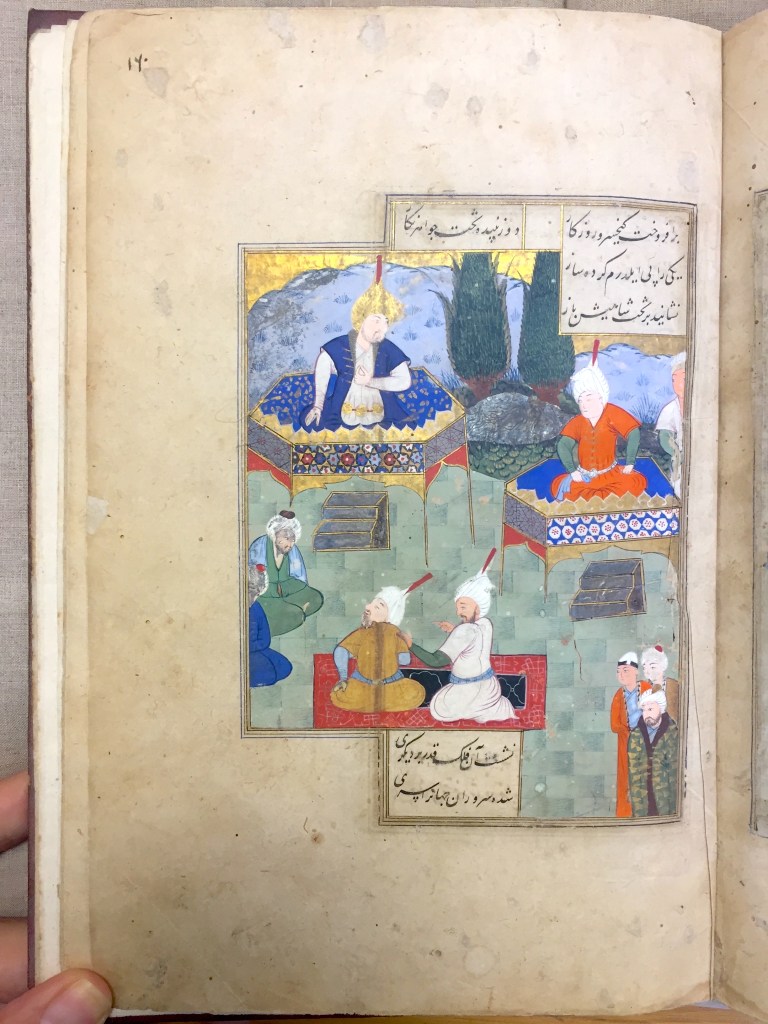 ۱۶۰
برافروخت کیخسرو روزگار دو زیبنده تخت جواهرنگار
یکی را پی ایلدرم کرده ساز
نشانید بر تخت شاهیش باز
نشست آن فلک قدر بر دیگری
شده سروران جهانرا سری